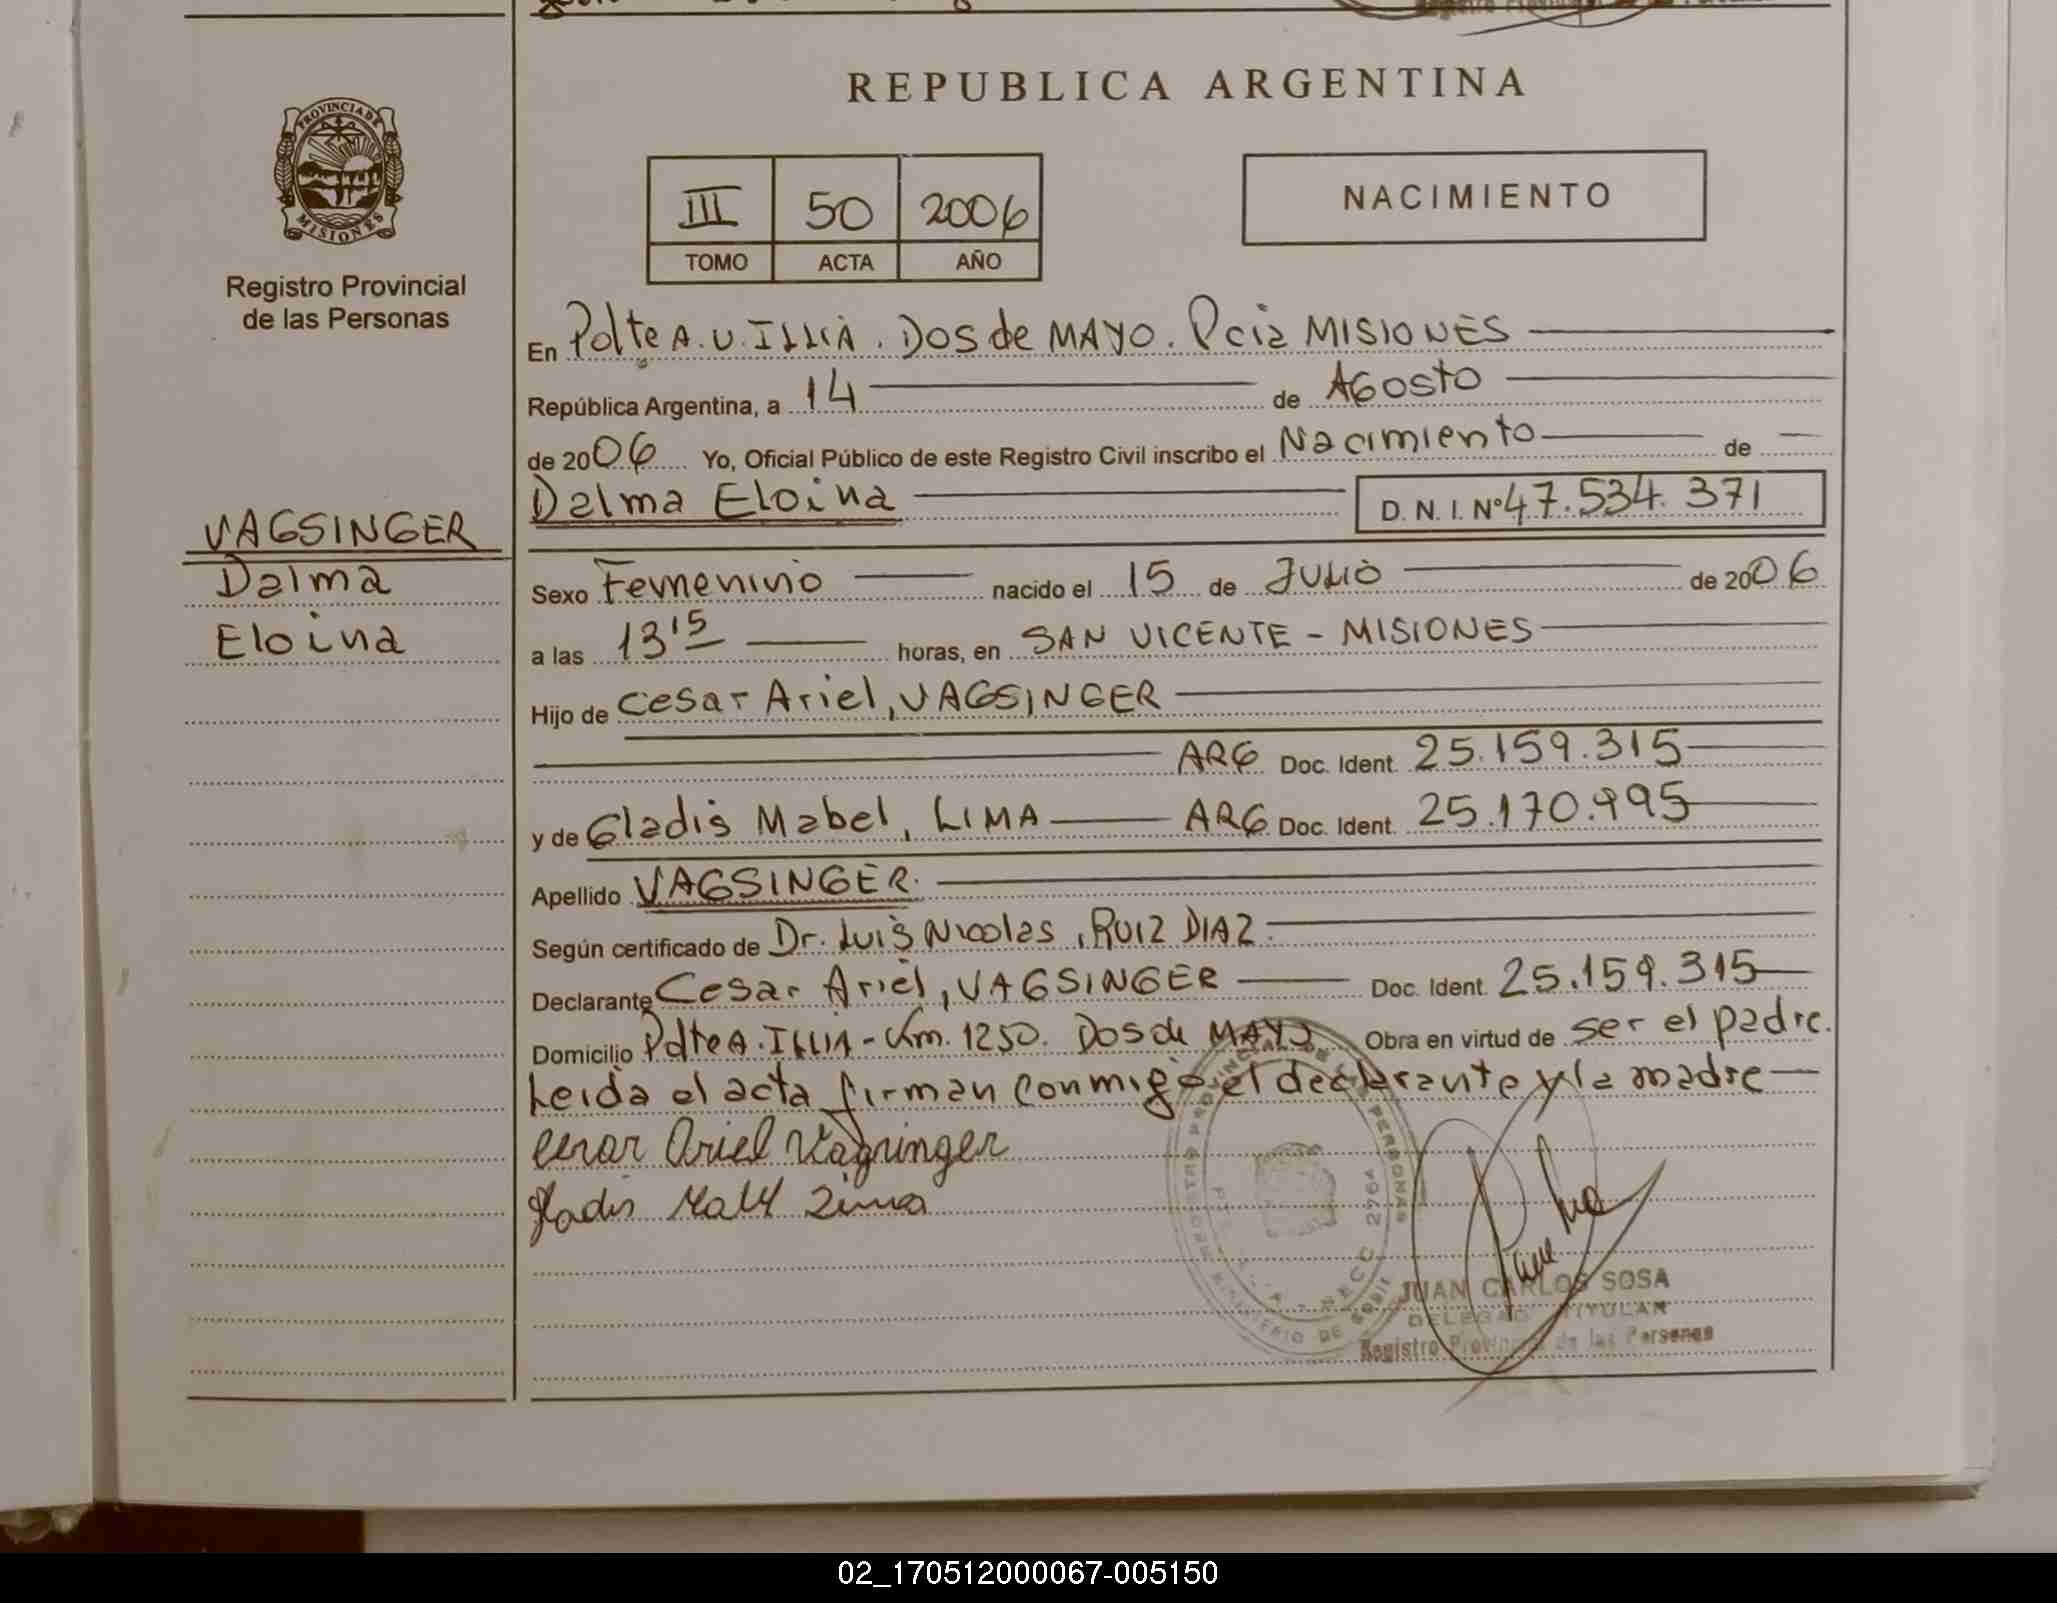 REPUBLICA ARGENTINA
PROVINCIA DE
MISIONES
Registro Provincial
de las Personas
III 50 2006
TOMO ACTA AÑO
NACIMIENTO
En Pdte A.U. ILLIA. Dos de MAYO. Pcia MISIONES
República Argentina, a 14 de AGosto
de 2006 Yo, Oficial Público de este Registro Civil inscribo el Nacimiento de
Dalma Eloina D. N. I. Nº 47.534.371
VAGSINGER
Dalma
Eloina
Sexo Femenino nacido el 15 de JULIO de 2006
a las 13 15 horas, en SAN VICENTE - MISIONES
Hijo de Cesar Ariel, VAGSINGER
ARG Doc. Ident. 25.159.315
y de Gladis Mabel, LIMA ARG Doc. Ident. 25.170.995
Apellido VAGSINGER.
Según certificado de Dr. Luis Nicolas, RUIZ DIAZ.
Declarante Cesar Ariel, VAGSINGER Doc. Ident. 25.159.315
Domicilio Pdte A. ILLIA - Km. 1250. Dos de MAYO Obra en virtud de ser el padre.
Leida el acta firman conmigo el declarante y la madre
Cesar Ariel Vagsinger
Gladis Mabel Lima
REGISTRO PROVINCIAL DE LAS PERSONAS
2764
MINISTERIO DE GOBIERNO
JUAN CARLOS SOSA
DELEGADO TITULAR
Registro Provincial de las Personas
02_170512000067-005150